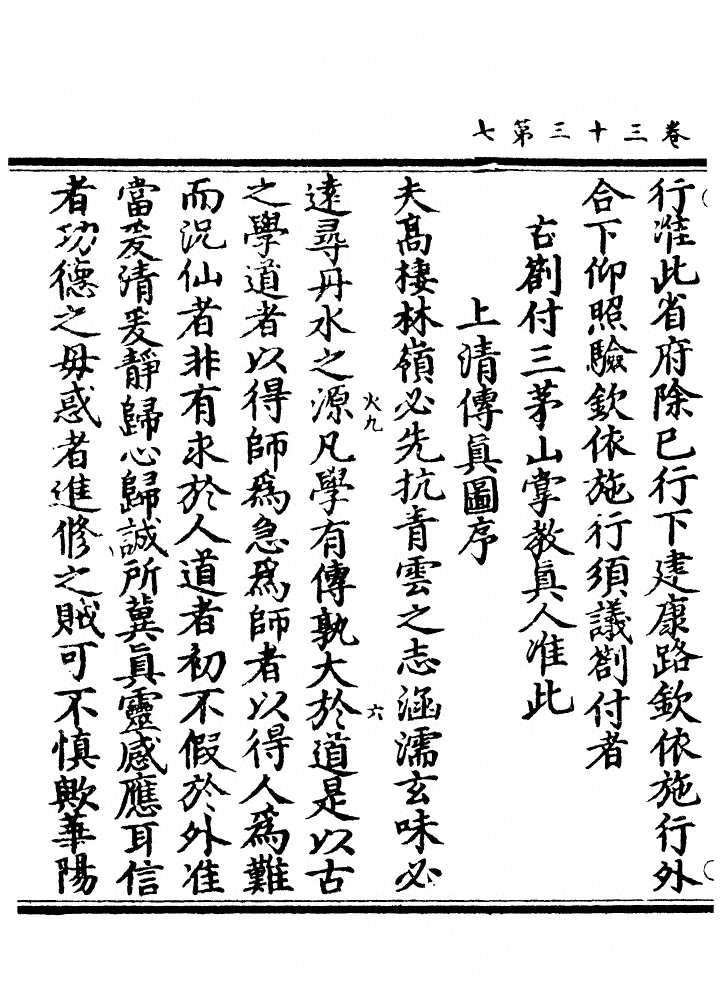 卷三十三第七
行准此省府除已行下建康路欽依施行外
合下仰照驗欽依施行須議劄付者
右劄付三茅山掌教眞人准此
上清傳眞圖序
夫髙棲林嶺必先抗青雲之志涵濡玄味必
火九
六
逺尋丹水之源凡學有傳孰大於道是以古
之學道者以得師爲急爲師者以得人爲難
而況仙者非有求於人道者初不假於外准
當爰清爰靜歸心歸誠所冀眞靈感應耳信
者功德之毋惑者進修之賊可不慎歟華陽